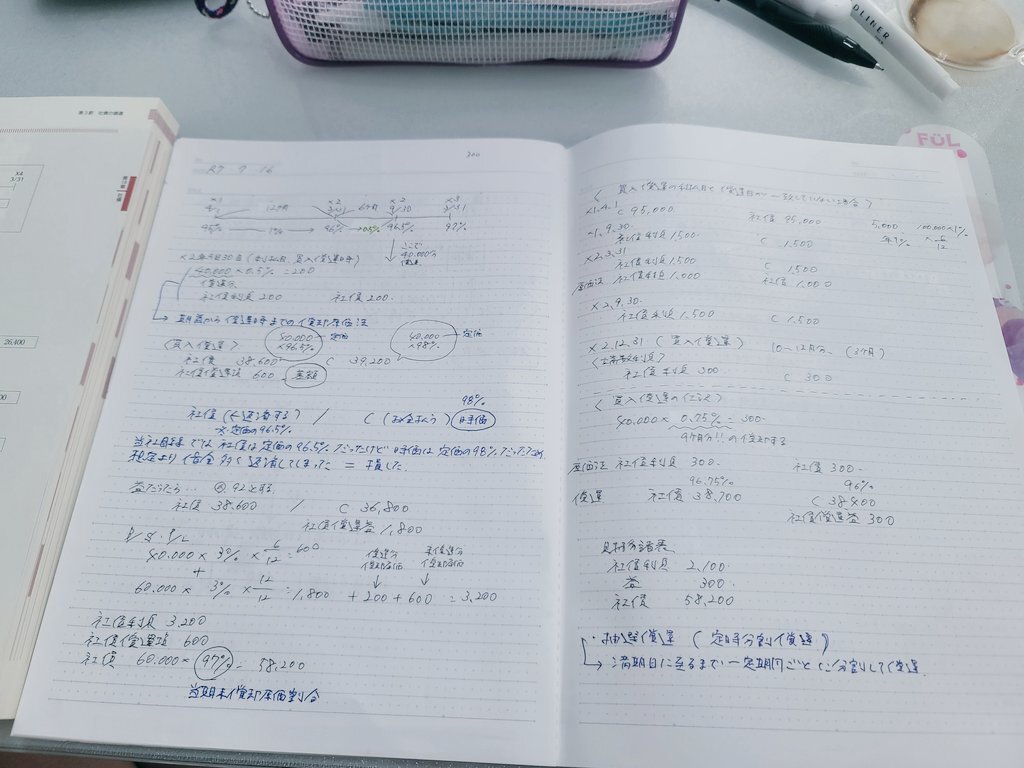 第3節 社債の償還
X4
3/31
26,400
DLINER
FUL
300
R7. 9. 16
X1 X2 X2 X3
4/1 12ヶ月 3/31 6ヶ月 9/30 3/31
95% 1% 96% 0.5% 96.5% 97%
ここで
40,000分
償還
X2年9月30日(利払日、買入償還時)
40,000×0.5% = 200
償還分
社債利息 200 社債 200.
→ 期首から償還時までの償却原価法
〈買入償還〉
40,000 ×96.5% 定価
40,000 ×98% 定価
社債 38,600 C 39,200
社債償還損 600 差額
98%
社債(を返済する) / C (お金はらう) 時価
※定価の96.5%
当社目線では社債は定価の96.5%だったけど時価は定価の98%だったため
想定より借金多く返済してしまった = 損した。
益だったら… 92とする。
社債 38,600 / C 36,800
社債償還益 1,800
B/S・P/L
40,000 × 3% × 6/12 = 600
+
60,000 × 3% × 12/12 = 1,800 + 200 + 600 = 3,200
償還分 未償還分
償却原価 償却原価
社債利息 3,200
社債償還損 600
社債 60,000 × 97% = 58,200
当期末償却原価割合
〈 買入償還の利払日と償還日が一致していない場合 〉
X1.4.1
C 95,000 社債 95,000
5,000 100,000×1%
×6/12
〃.9.30
社債利息 1,500 C 1,500
X2.3.31
社債利息 1,500 C 1,500
原価法 社債利息 1,000 社債 1,000
X2.9.30
社債利息 1,500 C 1,500
X2.12.31 (買入償還) 10〜12月分、(3ヶ月)
社債利息 300 C 300
〈買入償還の仕訳〉
40,000 × 0.75% = 300
9ヶ月分!!の償却する
原価法 社債利息 300 社債 300
96.75% 96%
償還 社債 38,700 C 38,400
社債償還益 300
財務諸表
社債利息 2,100
益 300
社債 58,200
・抽選償還 (定時分割償還)
→ 満期日に至るまで一定期間ごとに分割して償還。